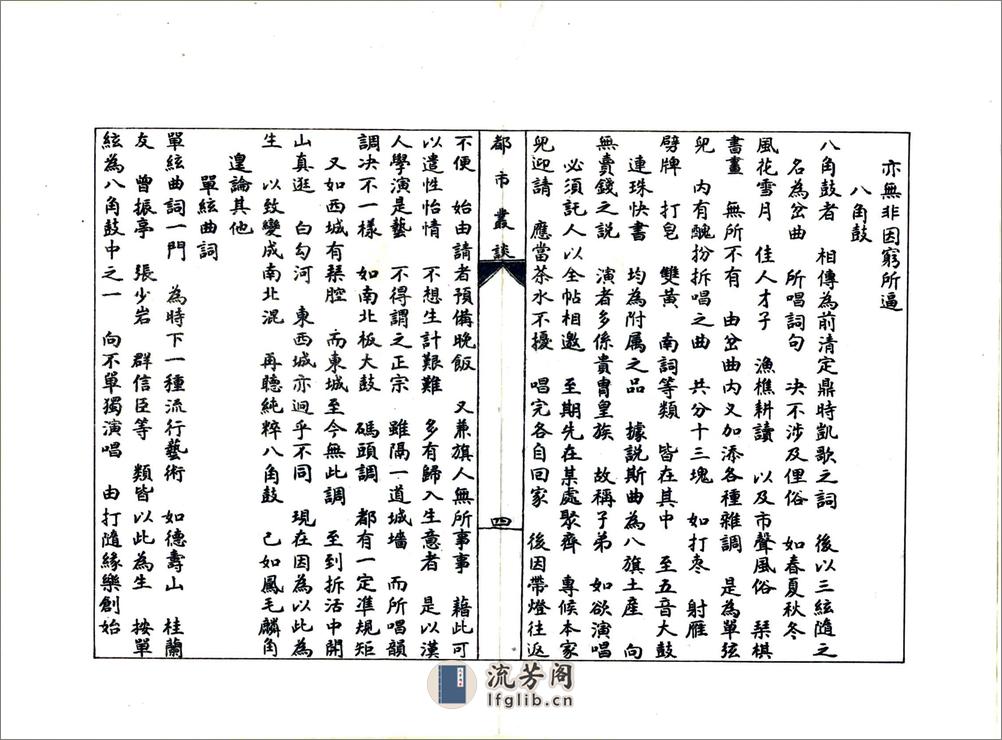 亦無非因窮所逼
八角鼓
八角鼓者 相傳為前清定鼎時凱歌之詞 後以三絃隨之
名為岔曲 所唱詞句 決不涉及俚俗 如春夏秋冬
風花雪月 佳人才子 漁樵耕讀 以及市聲風俗 琴棋
書畫 無所不有 由岔曲內又加添各種雜調 是為單弦
兒 內有醜扮拆唱之曲 共分十三塊 如打枣 射雁
劈牌 打皂 雙黃 南詞等類 皆在其中 至五音大鼓
連珠快書 均為附属之品 據說斯曲為八旗土産 向
無賣錢之說 演者多係貴冑皇族 故稱子弟 如欲演唱
必須託人以全帖相邀 至期先在某處聚齊 專候本家
兒迎請 應當茶水不擾 唱完各自回家 後因帶燈往返
都市叢談
四
不便 始由請者預備晚飯 又兼旗人無所事事 藉此可
以遣性怡情 不想生計艱難 多有歸入生意者 是以漢
人學演是藝 不得謂之正宗 雖隔一道城墻 而所唱韻
調决不一樣 如南北板大鼓 碼頭調 都有一定準規矩
又如西城有琴腔 而東城至今無此調 至到拆活中開
山真逛 白勾河 東西城亦迥乎不同 現在因為以此為
生 以致變成南北混 再聽純粹八角鼓 己如鳳毛麟角
遑論其他
單絃曲詞
單絃曲詞一門 為時下一種流行藝術 如德壽山 桂蘭
友 曾振亭 張少岩 群信臣等 類皆以此為生 按單
絃為八角鼓中之一 向不單獨演唱 由打隨緣樂創始
流芳阁
lfglib.cn